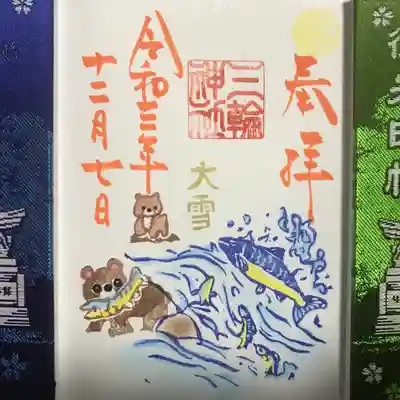 奉拝
三輪
神社
大雪
令和三年
十二月七日